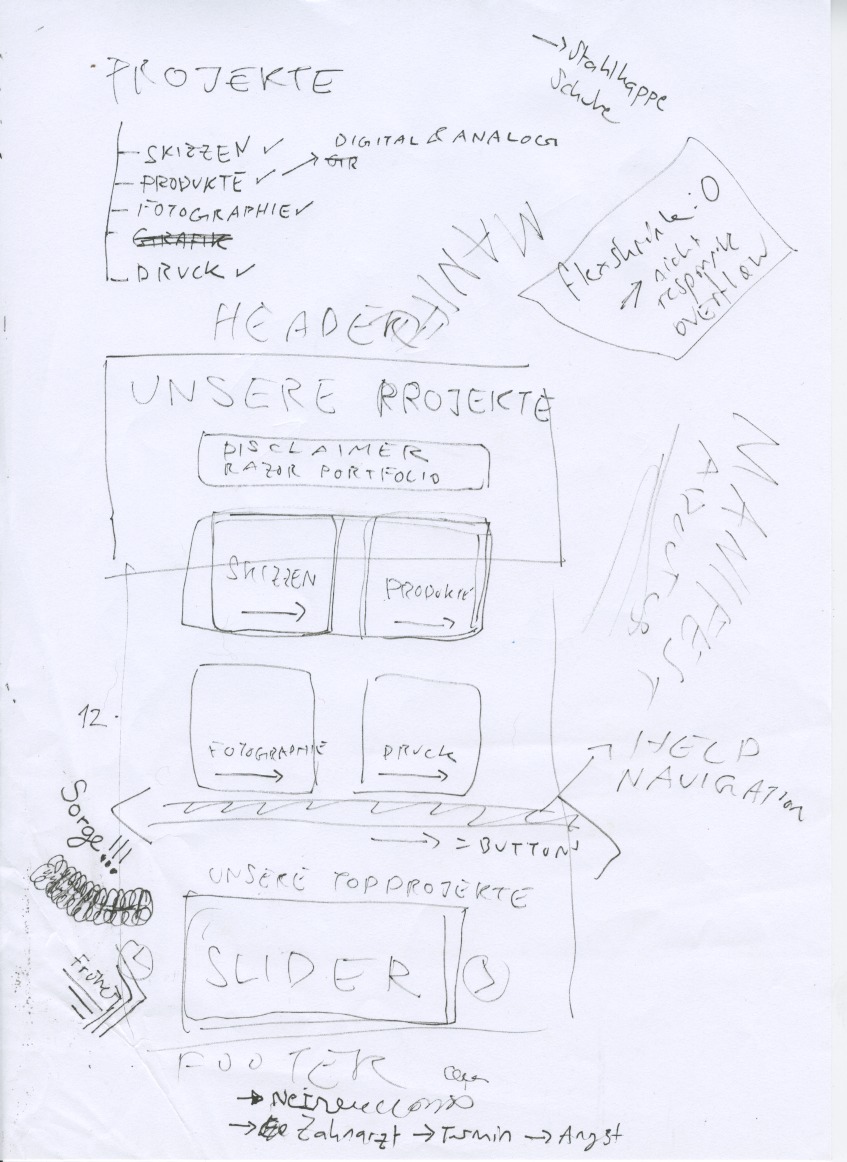 → Stahlkappe
Schuhe
PROJEKTE
SKIZZEN ✓
DIGITAL & ANALOG
PRODUKTE ✓ →
FOTOGRAPHIE ✓
GRAFIK
DRUCK ✓
flexshrink: 0
↗ nicht
responsive
OVERFLOW
MANIF
HEADER
UNSERE PROJEKTE
DISCLAIMER
RAZOR PORTFOLIO
MANIFEST
SKIZZEN
PRODUKTE
12.
FOTOGRAPHIE
DRUCK
HELP
NAVIGATION
→ = BUTTONS
Sorge!!!
UNSERE TOPPROJEKTE
SLIDER
Früher
FOOTER
→ Zahnarzt → Termin → Angst